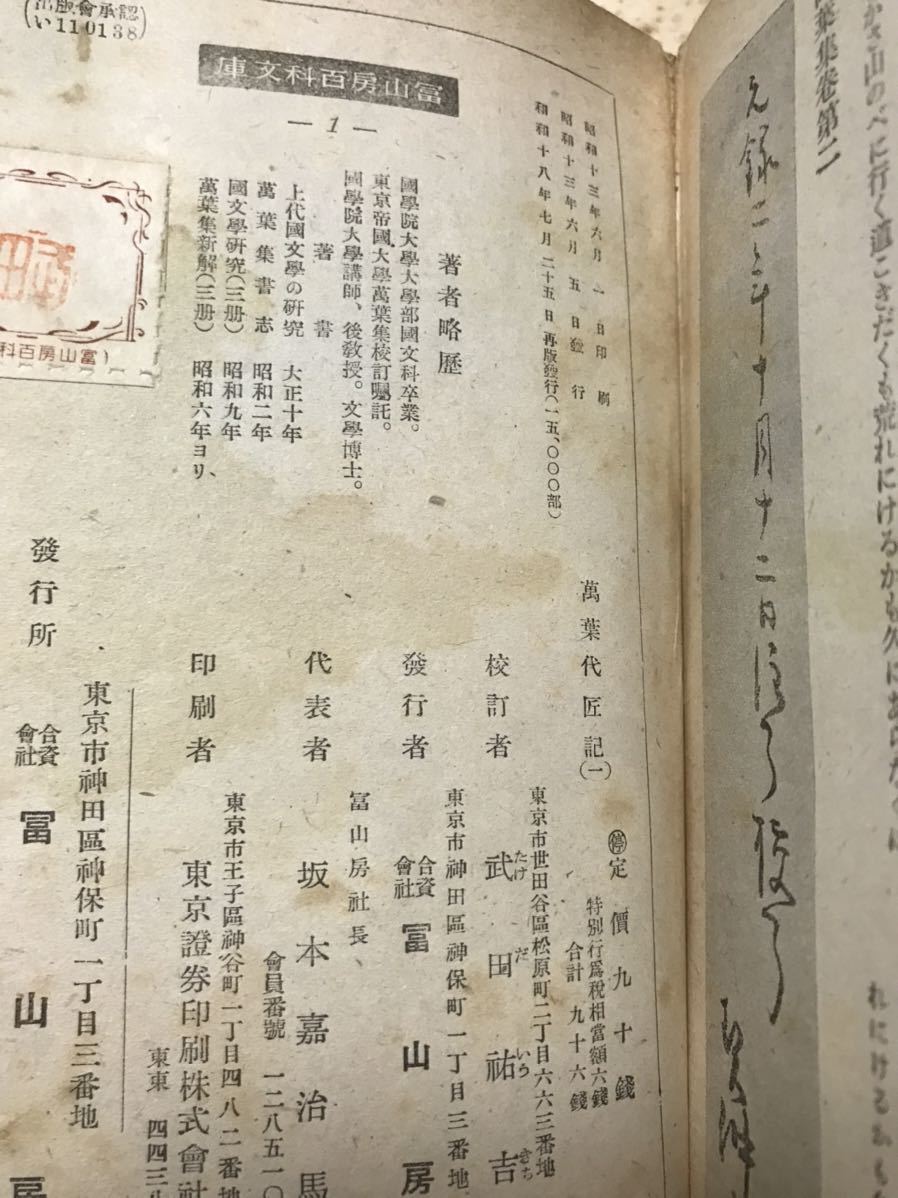 萬葉集卷第二
昭和十三年六月一日印刷
昭和十三年六月五日發行
昭和十八年七月二十五日再版發行(一五、〇〇〇部)
萬葉代匠記(一)
㊡定價九十錢
特別行爲稅相當額六錢
合計九十六錢
東京市世田谷區松原町二丁目六六三番地
校訂者 武田祐吉
たけ だ いう きち
東京市神田區神保町一丁目三番地
發行者 合資會社 冨山房
冨山房社長
代表者 坂本嘉治馬
會員番號 一二八五一〇
東京市王子區神谷町一丁目四八二番地
印刷者 東京證券印刷株式會社
東東 四四三
東京市神田區神保町一丁目三番地
發行所 合資會社 冨山房
冨山房百科文庫
— 1 —
著者略歷
國學院大學大學部國文科卒業。
東京帝國大學萬葉集校訂囑託。
國學院大學講師、後敎授。文學博士。
著書
上代國文學の硏究 大正十年
萬葉集書志 昭和二年
國文學硏究(三册) 昭和九年
萬葉集新解(三册) 昭和六年ヨリ、
(出版會承認
い110138)
(冨山房百科